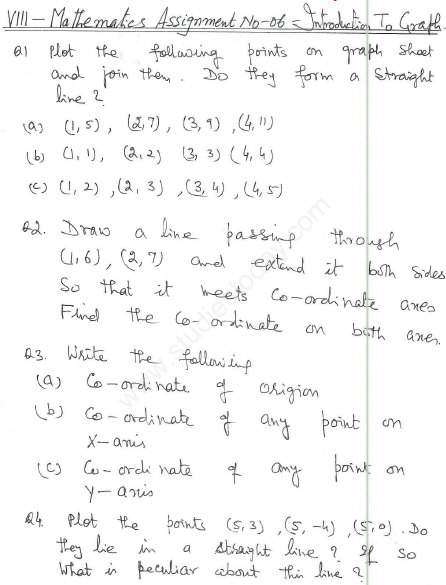 VIII - Mathematics Assignment No-06 = Introduction To Graph.
Q1 Plot the following points on graph sheet
and join them. Do they form a straight
line ?
(a) (1,5), (2,7), (3,9), (4,11)
(b) (1,1), (2,2) (3,3) (4,4)
(c) (1,2), (2,3), (3,4), (4,5)
Q2. Draw a line passing through
(1,6), (2,7) and extend it both sides
So that it meets Co-ordinate axes
Find the Co-ordinate on both axes.
Q3. Write the following
(a) Co-ordinate of origion
(b) Co-ordinate of any point on
X-axis
(c) Co-ordinate of any point on
Y-axis
Q4. Plot the points (5,3), (5,-4), (5,0). Do
they lie in a straight line ? If so
What is peculiar about this line ?
www.studiestoday.com